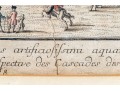 s artificiosissimi aquar
spective des Cascades des